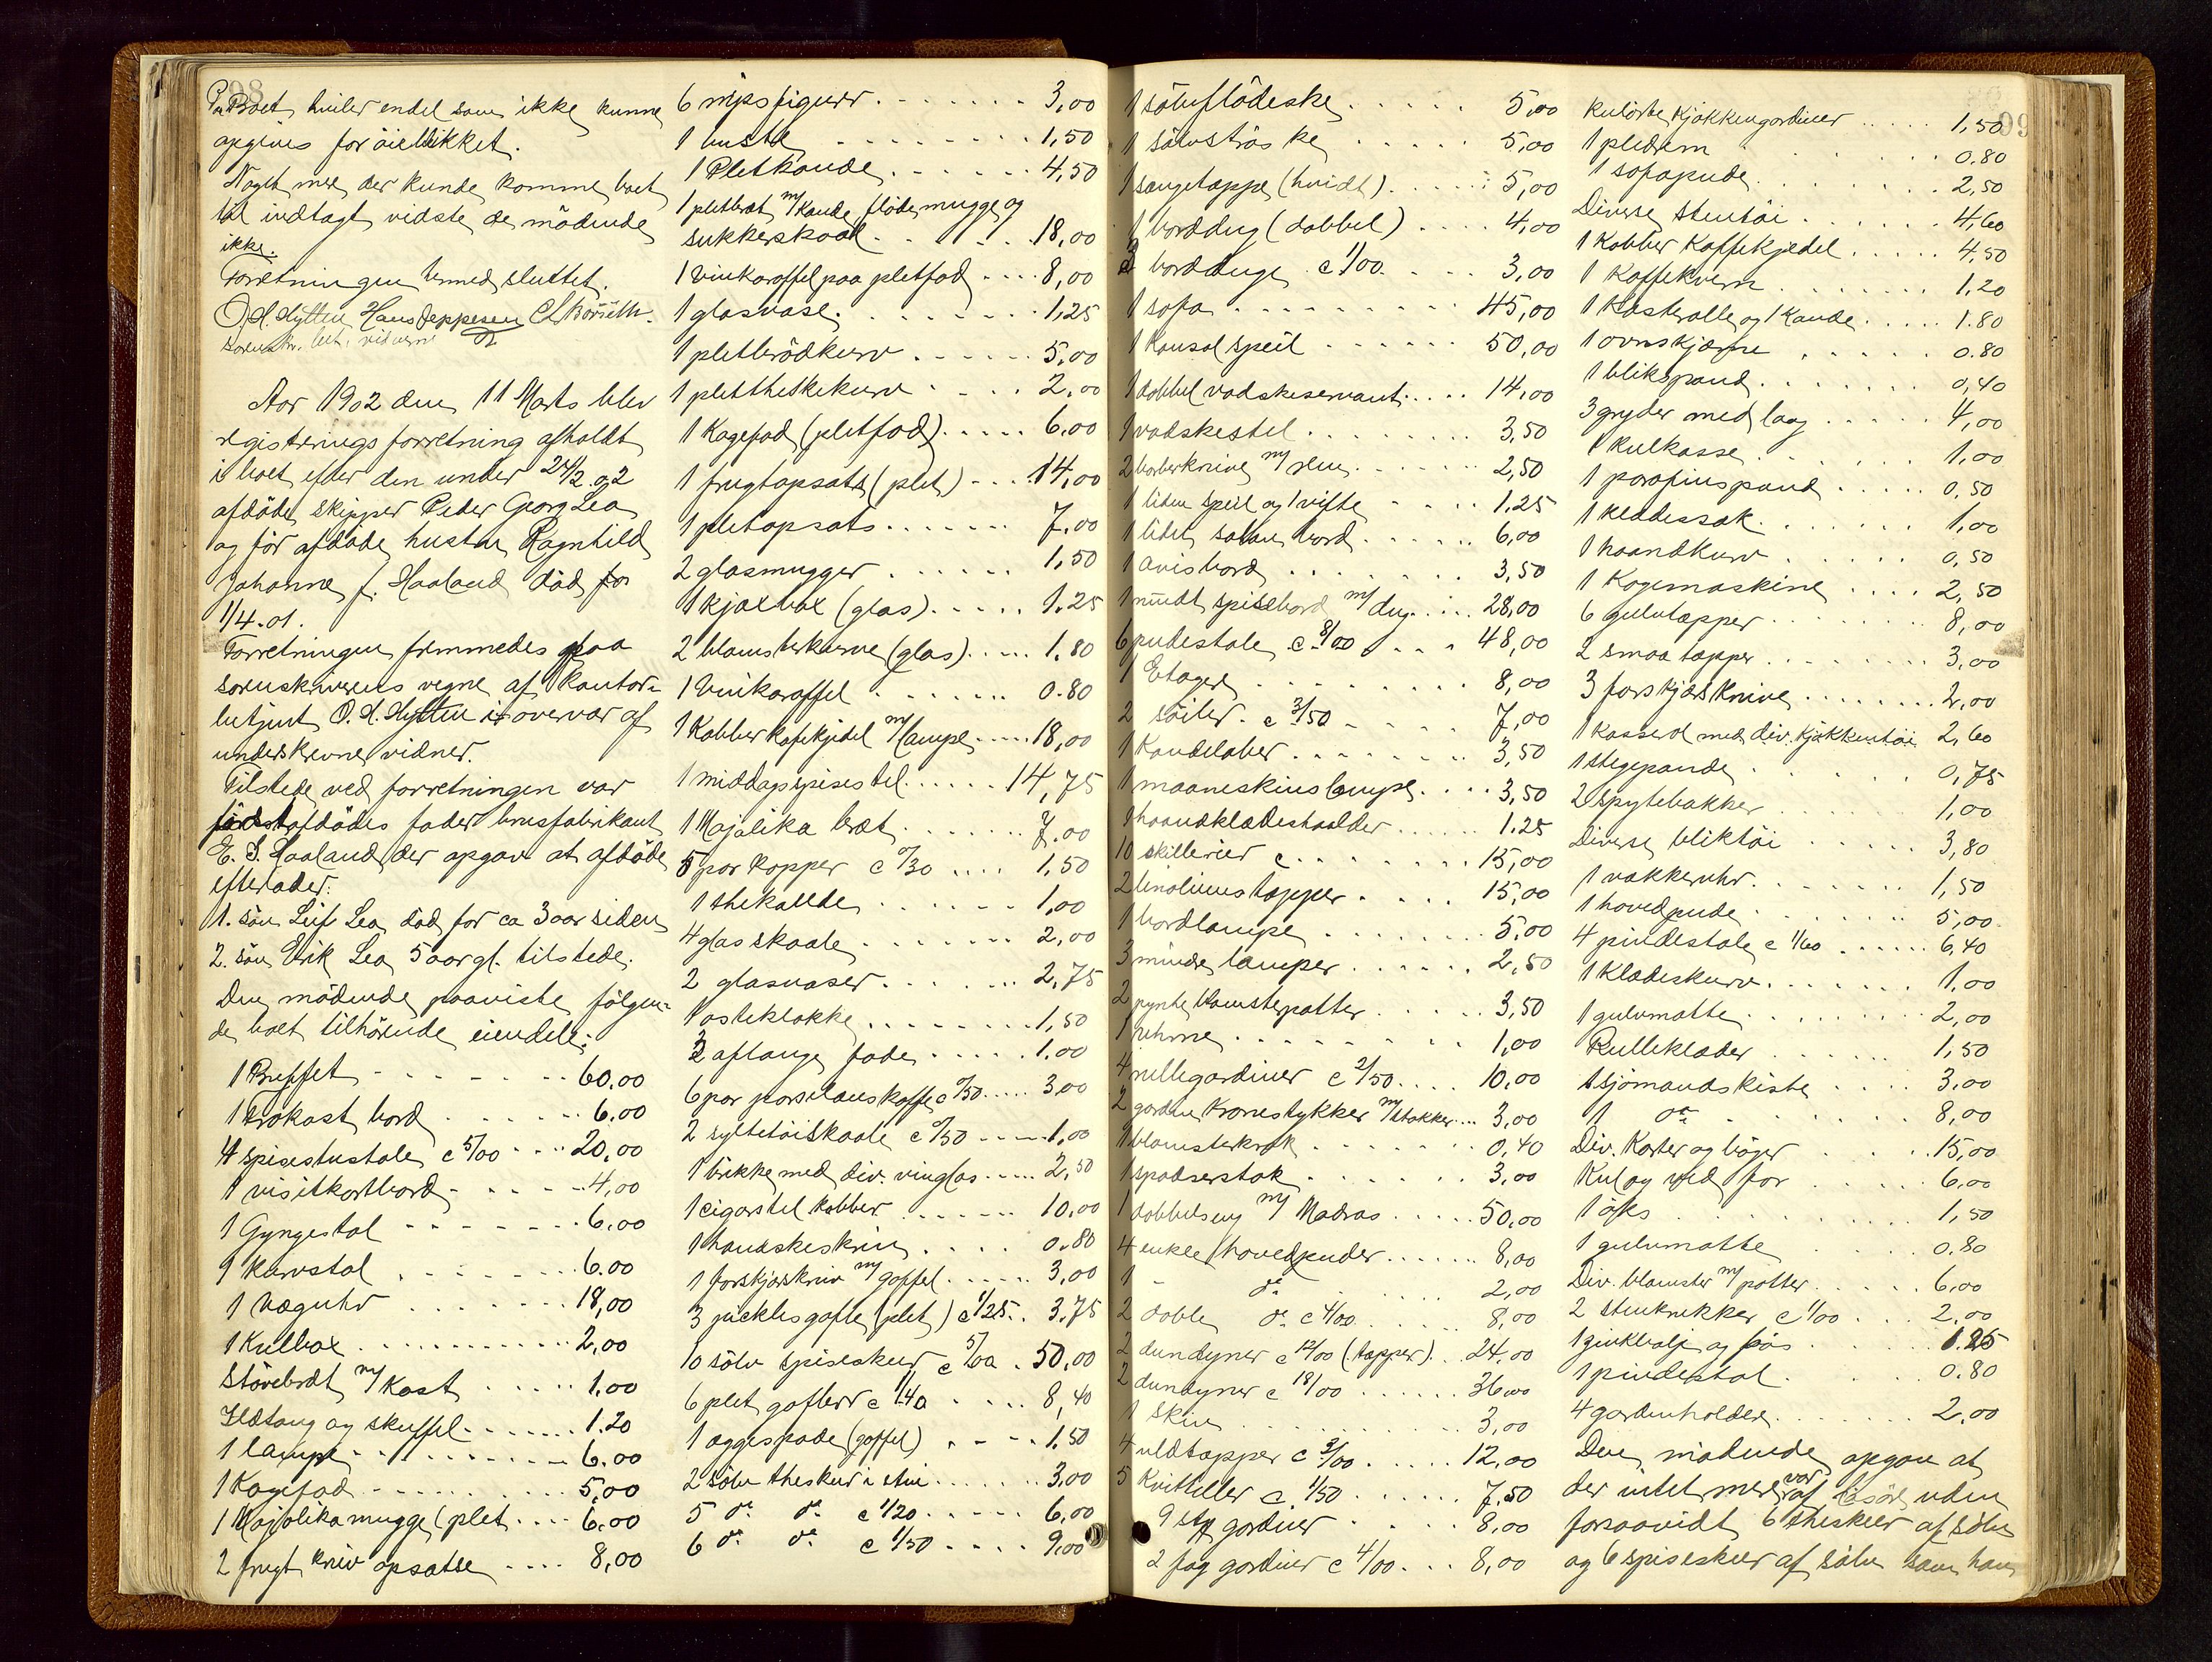 98
Paa Boet hviler endel som ikke kunne
opgives for öieblikket.
Noget mere der kunde komme boet
til indtægt vidste de mödende
ikke.
Forretningen hermed sluttet.
O. H. Hytten Hans Jeppesen
Aar 1902 den 11 Marts blev
registreringsforretning afholdt
i boet efter den under 24/2 02
afdöde skipper Peder Georg Lea
og för afdöde hustru Ragnhild
Johanne f. Haaland död for
1/4-01.
Forretningen fremmedes paa
sorenskriverens vegne af kontor-
betjent O. H. Hytten i overvær af
underskrevne vidner.
Tilstede ved forretningen var
förstafdödes fader brusfabrikant
E. S. Haaland der opgav at afdöde
efterlader:
1. sön Leif Lea död for ca 3 aar siden
2. sön Erik Lea 5 aar gl. tilstede.
Den mödende paaviste fölgen-
de boet tilhörende eiendele:
1 Buffet - - - 60.00
1 Frokost bord - - - 6.00
4 spisestustole c 5/00 - - - 20,00
1 visitkortbord - - - 4,00
1 Gyngestol - - - 6.00
1 kurvstol - - - 6.00
1 Væguhr - - - 18,00
1 Kulbox - - - 2,00
Stövebræt m/ Kost - - - 1.00
Ildtang og skuffel - - - 1.20
1 lampe - - - 6.00
1 Kagefad - - - 5,00
1 Majolikamugge (plet - - - 6.00
2 frugt kniv opsatse - - - 8,00
6 gipsfigurer - - - 3,00
1 buste - - - 1,50
1 Pletkande - - - 4,50
1 pletbræt m/ Kande flödemugge og
sukkerskaal - - - 18,00
1 Vinkaraffel paa pletfad - - - 8,00
1 glasvase - - - 1,25
1 pletbrödkurv - - - 5.00
1 pletthekekurv - - - 2.00
1 Kagefad (pletfod) - - - 6.00
1 frugtopsats (plet) - - - 14,00
1 pletopsats - - - 7.00
2 glasmugger - - - 1,50
1 kjæxbox (glas) - - - 1.25
2 blomsterkurve (glas) - - - 1.80
1 Vinkaraffel - - - 0.80
1 Kobberkafekjedel m/ lampe - - - 18,00
1 middagsspisestel - - - 14,75
1 Majolika bræt - - - 7.00
5 par kopper c 0/30 - - - 1,50
1 thekalle - - - 1,00
4 glasskaale - - - 2,00
2 glasvaser - - - 2,75
1 osteklokke - - - 1,50
2 aflange fade - - - 1.00
6 par porselænskaffe c 0/50 - - - 3,00
2 syltetöiskaale c 0/50 - - - 1,00
1 brikke med div. vinglas - - - 2,50
1 cigarstel kobber - - - 10.00
1 handskeskrin - - - 0.80
1 forskjærskniv m/ gaffel - - - 3,00
3 pickles gafle (plet) c 1/25 - - - 3.75
10 sölv spiseskeer c 5/00 - - - 50,00
6 plet gafler c 1/40 - - - 8,40
1 æggespade (gaffel) - - - 1.50
2 sölv theskeer i etui - - - 3,00
5 do. do. c 1/20 - - - 6,00
6 do. do. c 1/50 - - - 9,00
99
1 sölvflödeske - - - 5,00
1 sölvströske - - - 5,00
1 sengetæppe (hvidt) - - - 5,00
1 borddug (dobbel) - - - 4,00
3 bordduge c 1/00 - - - 3,00
1 sofa - - - 45,00
1 Konsolspeil - - - 50,00
1 dobbel vadskeservant - - - 14,00
1 vadskestel - - - 3,50
2 barberknive m/ rem - - - 2,50
1 liden speil og 1 vifte - - - 1.25
1 lidet salonbord - - - 6,00
1 avisbord - - - 3,50
1 rundt spisebord m/ dug - - - 28,00
6 pudestole c 8/00 - - - 48,00
1 Etagere - - - 8,00
2 söiler c 3/50 - - - 7,00
1 Kandelaber - - - 3,50
1 maaneskinslampe - - - 3,50
1 haandklædeholder - - - 1.25
10 skillerier c - - - 15,00
2 linoliumstæpper - - - 15,00
1 bordlampe - - - 5.00
3 mindre lamper - - - 2,50
2 pynteblomsterpotter - - - 3,50
1 - - - 1,00
4 rullegardiner c 2/50 - - - 10,00
2 gardin Kronestykker m/ stokker - - - 3,00
1 blomsterkrok - - - 0,40
1 spadserstok - - - 3,00
1 dobbelseng m/ Madras - - - 50,00
4 enkle hovedpuder - - - 8,00
1 - do. - - - 2,00
2 doble do. c 4/00 - - - 8,00
2 dundyner c 12/00 (tæpper) - - - 24,00
2 dundyner c 18/00 - - - 36,00
1 skin - - - 3,00
4 uldtæpper c 3/00 - - - 12,00
5 Kvitteller c 1/50 - - - 7,50
9 stk gardiner - - - 8,00
2 fag gardiner c 4/00 - - - 8,00
kulörte Kjökkengardiner - - - 1,50
1 pledrem - - - 0.80
1 sofapude - - - 2,50
Diverse Stentöi - - - 4,60
1 Kobber Kaffekjedel - - - 4,50
1 Kaffekvern - - - 1.20
1 Kasteralle og 1 Kande - - - 1.80
1 ovnskjærm - - - 0.80
1 blikspand - - - 0,40
3 gryder med laag - - - 4,00
1 kulkasse - - - 1,00
1 parafinspand - - - 0,50
1 klædessæk - - - 1,00
1 haandkurv - - - 0,50
1 Kogemaskine - - - 2,50
6 gulvtæpper - - - 8,00
2 smaa tæpper - - - 3,00
3 forskjærsknive - - - 2,00
1 kasserol med div. kjökkentöi 2,60
1 stegepande - - - 0,75
2 spytebakker - - - 1,00
Diverse bliktöi - - - 3,80
1 vækkeruhr - - - 1,50
1 hovedpude - - - 5,00
4 pindestole c 1/60 - - - 6,40
1 Klædeskurv - - - 1,00
1 gulvmatte - - - 2,00
Rulleklæder - - - 1,50
1 sjömandskiste - - - 3.00
1 do. - - - 8,00
Div. Karter og böger - - - 15,00
Kul og ved for - - - 6.00
1 öks - - - 1,50
1 gulvmatte - - - 0.80
Div. blomster m/ potter - - - 6,00
2 stenkrukker c 1/00 - - - 2,00
1 zinkbalje og bös - - - 1.25
1 pindestol - - - 0.80
4 gardinholdere - - - 2,00
Den mödende opgav at
der intet mere var af lösöre uden
forsaavidt 6 theskeer af sölv
og 6 spiseskeer af sölv som han